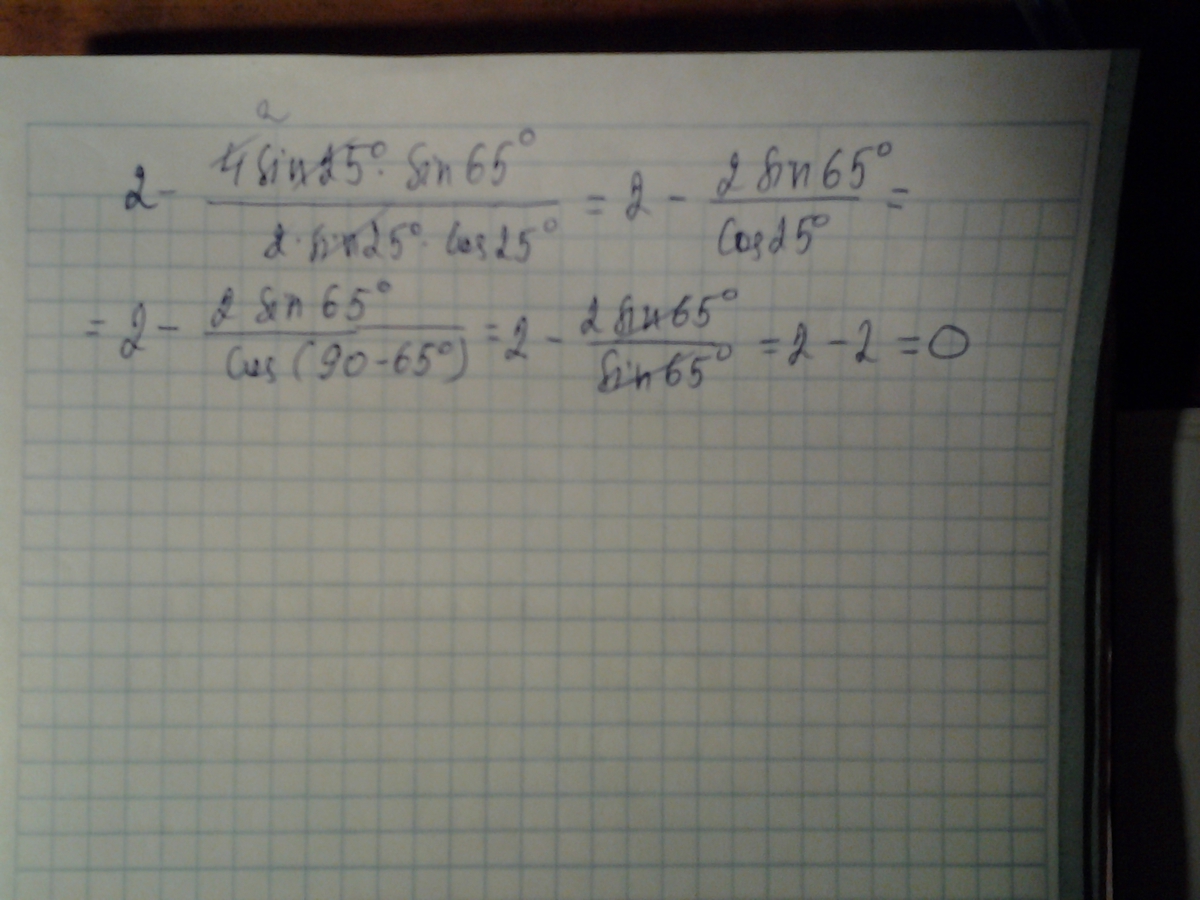 2
2 - 4 sin25° · sin 65° / 2 · sin25° · cos25° = 2 - 2 sin65° / cos25° =
= 2 - 2 sin 65° / cos(90-65°) = 2 - 2 sin65° / sin65° = 2 - 2 = 0